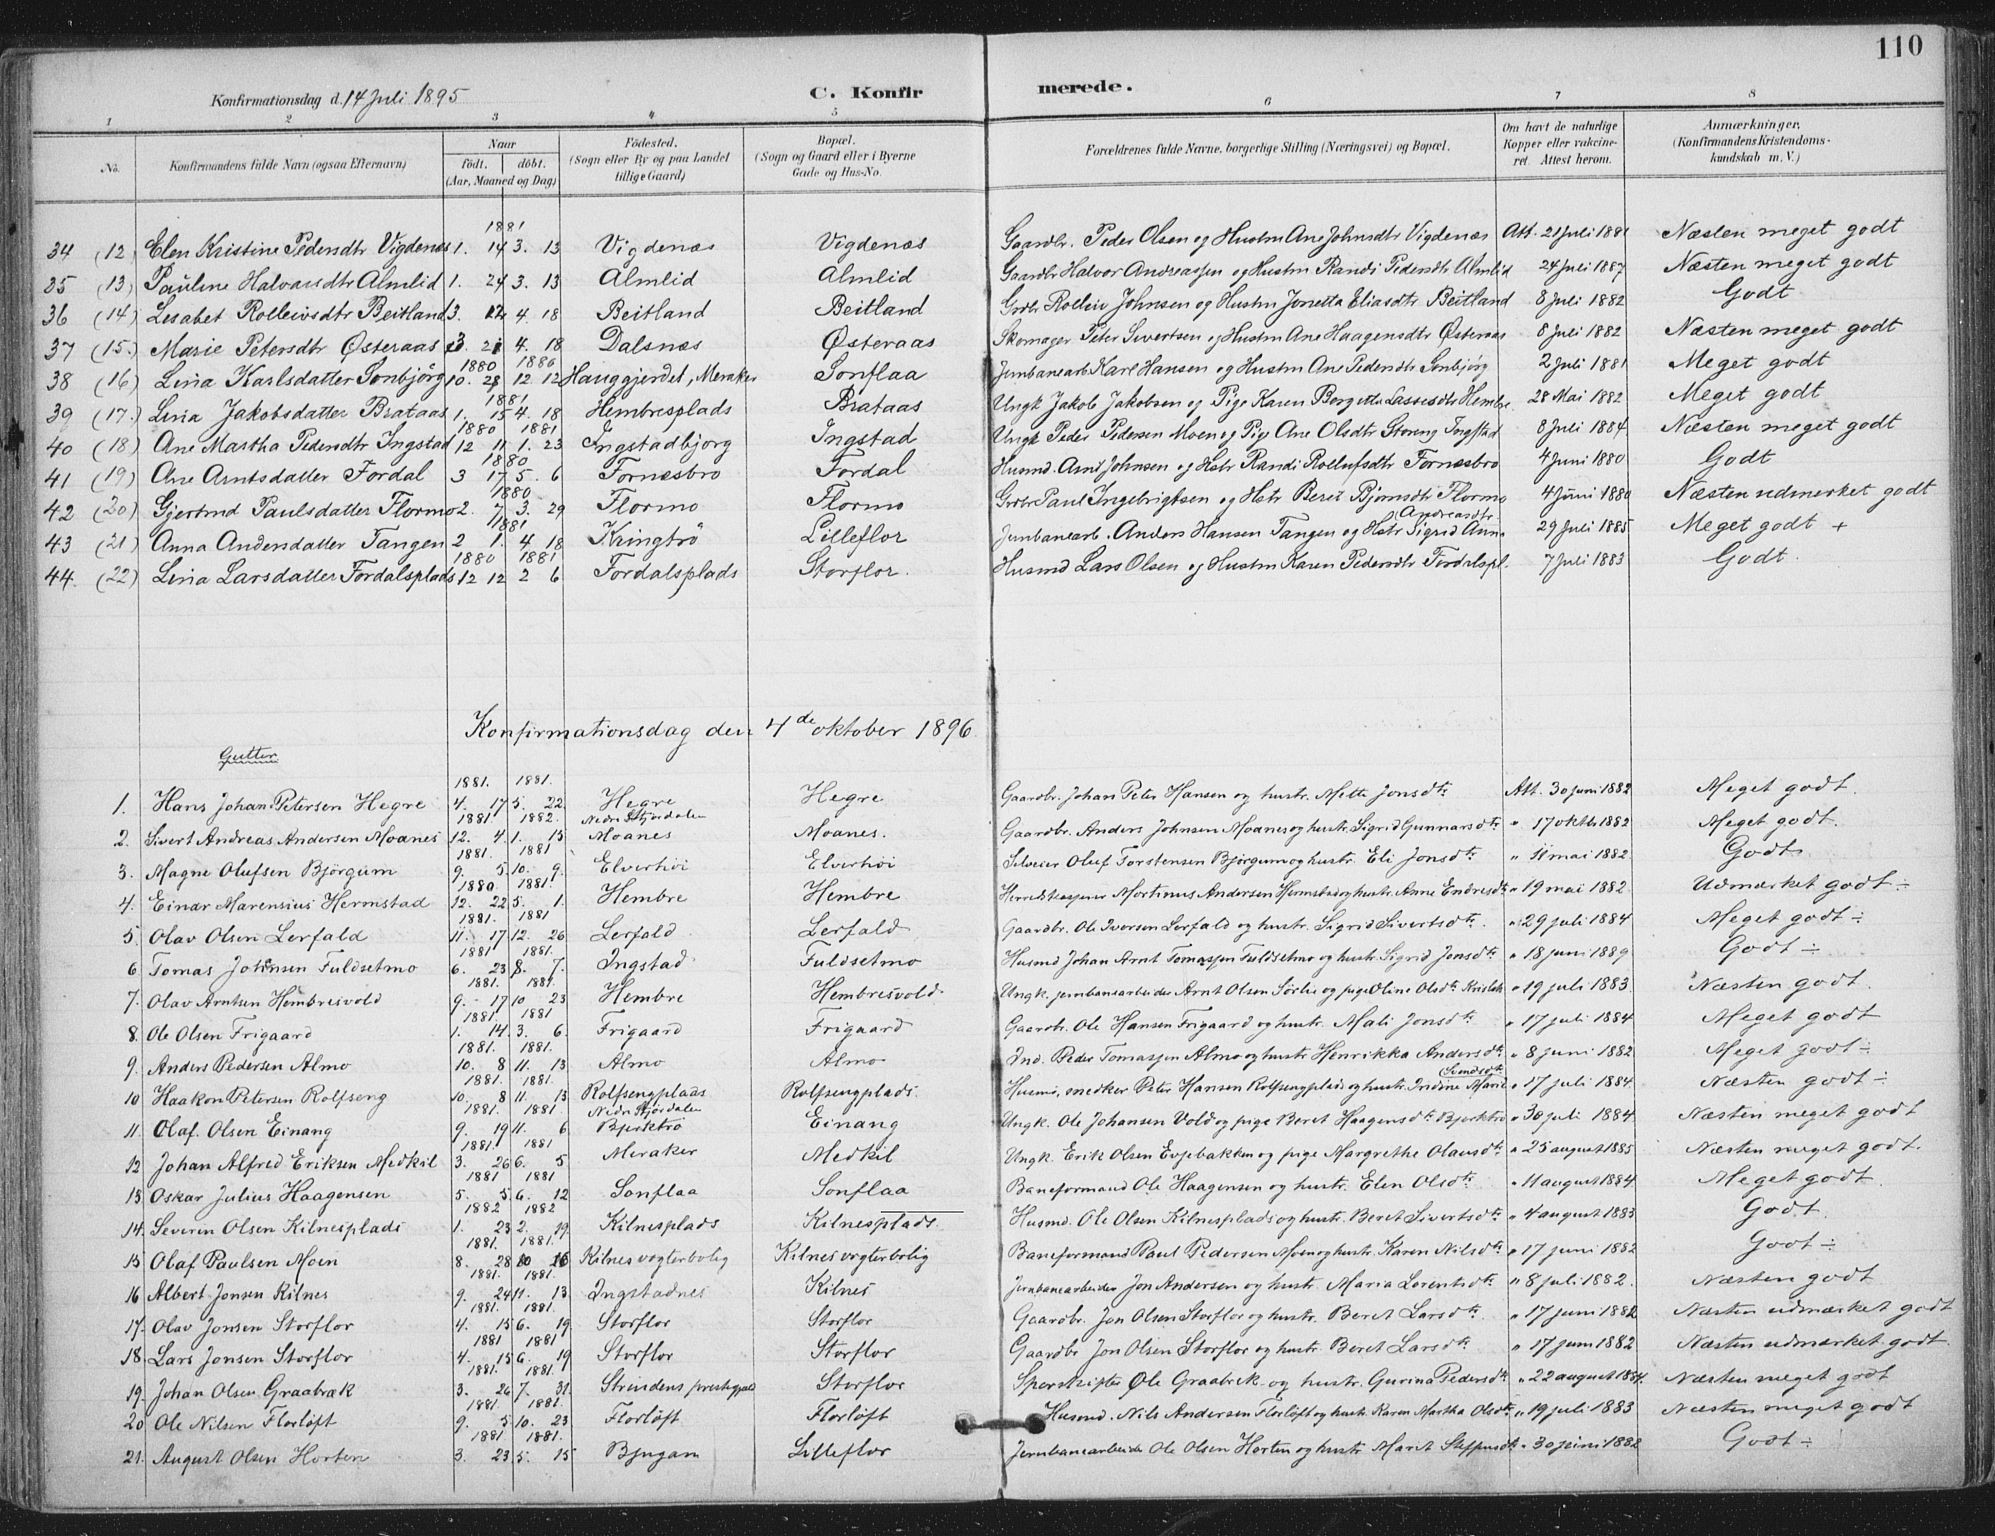 110
Konfirmationsdag d. 14 Juli 1895 C. Konfirmerede.
1 2 3 4 5 6 7 8
No. Konfirmandens fulde Navn (ogsaa Efternavn) Naar født. døbt. (Aar, Maaned og Dag) Fødested. (Sogn eller By og paa Landet tillige Gaard) Bopæl. (Sogn og Gaard eller i Byerne Gade og Hus-No. Forældrenes fulde Navne, borgerlige Stilling (Næringsvei) og Bopæl. Om havt de naturlige Kopper eller vakcineret. Attest herom. Anmærkninger. (Konfirmandens Kristendomskundskab m. V.)
1881
34 (12) Elen Kristine Pedersdtr Vigdenæs 1. 14 3. 13 Vigdenæs Vigdenæs Gaardbr. Peder Olsen og Hustru Ane Johnsdtr Vigdenæs Att. 21 Juli 1881 Næsten meget godt
35 (13) Pauline Halvorsdtr Almlid 1. 24 3. 13 Almlid Almlid Gaardbr Halvor Andreassen og Hustru Randi Pedersdtr Almlid 24 Juli 1887 Næsten meget godt
36 (14) Lesabet Rolleivsdtr Beitland 3. 12 4. 18 Beitland Beitland Grdbr Rolleiv Johnsen og Hustru Jonetta Eliasdtr Beitland 8 Juli 1882 Godt
37 (15.) Marie Petersdtr Østeraas 3. 21 4. 18 Dalsnæs Østeraas Skomager Peter Sivertsen og Hustru Ane Haagensdtr Østeraas 8 Juli 1882 Næsten meget godt
1880 1880
38 (16) Lina Karlsdatter Sonbjörg 10. 28 12 12 Hauggjerdet, Meraker Sonflaa Jernbanearb Karl Hansen og Hustru Ane Pedersdtr Sonbjörg 2 Juli 1881 Meget godt
1881
39 (17.) Lina Jakobsdatter Brataas 1. 15 4. 18 Hembresplads Brataas Ungk Jakob Jakobsen og Pige Karen Borgitta Lassesdtr Hembre 28 Mai 1882 Meget godt
1880 1881
40 (18) Ane Martha Pedersdtr Ingstad 12 11 1. 23 Ingstadbjorg Ingstad Ungk Peder Pedersen Moen og Pige Ane Olsdtr Ingstad 8 Juli 1884 Næsten meget godt
1880
41 (19) Ane Arntsdatter Fordal 3 17 5. 6 Fornesbro Fordal Husmd. Arnt Johnsen og Hstr Randi Rollufsdtr Fornesbro 4 Juni 1880 Godt
1880
42 (20) Gjertrud Paulsdatter Flormo 2. 7 3. 29 Flormo Flormo Grdbr Paul Ingebrigtsen og Hstr Beret Bjornsdtr Flormo 4 Juni 1880 Næsten udmerket godt
1881 (Andreasdtr
43 (21) Anna Andersdatter Tangen 2 1. 4 18 Kringtrö Lilleflor Jernbanearb. Anders Hansen Tangen og Hstr Sigrid Ann. 29 Juli 1885 Meget godt +
1880 1881
44. (22) Lina Larsdatter Fordalsplads 12 12 2 6 Fordalsplads Storflor. Husmd Lars Olsen og Hustru Karen Pedersdtr Fordalspl. 7 Juli 1883 Godt.
Konfirmationsdag den 4de oktober 1896
Gutter
1881. 1881.
1. Hans Johan Petersen Hegre 4. 17 5. 22. Hegre Hegre Gaardbr. Johan Peter Hansen og hustr. Mette Jonsdtr Att. 30 juni 1882 Meget godt.
1881 1882. Nedre Stjördalen
2. Sivert Andreas Andersen Moanes 12. 4 1. 15 Moanes Moanes. Gaardbr. Anders Johnsen Moanes og hustr. Sigrid Gunnarsdtr " 17 oktbr 1882 Meget godt.
1881. 1881
3. Magne Olufsen Björgum 9. 5 10. 9. Elverhöi Elverhöi Oluf Torstensen Björgum og hustr. Eli Jonsdtr " 11 mai 1882. Godt
1880 1881.
4. Einar Marensius Hermstad 12. 22 5. 1. Hembre Hembre Herredskasserer Mortinus Andersen Hermstad og hustr. Anne Endresdtr " 19 mai 1882. Udmærket godt ÷
1881. 1881
5. Olav Olsen Lerfald 11. 17 12. 26 Lerfald Lerfald Gaardbr. Ole Iversen Lerfald og hustr. Sigrid Sivertsdtr. " 29 juli 1884 Meget godt ÷
1881 1881.
6. Tomas Johansen Fuldsetmo 6. 23 8. 7. Ingstad Fuldsetmo Husmd Johan Arnt Tomassen Fuldsetmo og hustr. Sigrid Jonsdtr " 18 juni 1889 Godt ÷
1881. 1881.
7. Olav Arntsen Hembresvold 9. 17 10 23 Hembre Hembresvold Ungk. jernbanearbeider Arnt Olsen Sörlie og pige Oline Olsdtr " 19 juli 1883. Næsten godt.
1881. 1881
8. Ole Olsen Frigaard 1. 14 3. 6. Frigaard Frigaard Gaardbr. Ole Hansen Frigaard og hustr. Mali Jonsdtr " 17 juli 1884 Meget godt
1881. 1881.
9. Anders Pedersen Almo 10. 8 11. 13 Almo Almo Ind. Peder Tomassen Almo og hustr. Henrikka Andersdtr " 8 juni 1882 Meget godt ÷
1881. 1881.
10 Haakon Petersen Rolfseng 10. 8 11. 13 Rolfsengplads Rolfsengplads. Husmd, snedker Peter Hansen Rolfsengplads og hustr. Indine Marie " 17 juli 1884. Næsten godt ÷
1881. 1881. Nedre Stjördalen
11. Olaf. Olsen Einang 9. 19 11. 6 Bjerktrö Einang Ungk. Ole Johansen Vold og pige Beret Haagensdtr Bjerktrö " 30 juli 1884 Næsten meget godt
1881. 1881
12 Johan Alfred Eriksen Medkil 3. 26 6. 5 Meraker Medkil Ungk. Erik Olsen Evjebakken og pige Margrethe Olausdtr " 25 august 1885 Næsten meget godt.
1881 1881
13 Oskar Julius Haagensen 5. 5 6. 12 Sonflaa Sonflaa Baneformand Ole Haagensen og hustr. Elen Olsdtr " 11 august 1884 Meget godt.
1882 1882
14. Severin Olsen Kilnesplads 1. 23 2. 19. Kilnesplads Kilnesplads. Husmd. Ole Olsen Kilnesplads og hustr. Beret Sivertsdtr " 4 august 1883 Godt.
1881. 1881.
15 Olaf Paulsen Moen 8. 28 10 16 Kilnes vogterbolig Kilnes vogterbolig Baneformand Paul Pedersen Moen og hustr. Karen Nilsdtr " 17 juni 1882 Godt ÷
1881. 1881.
16 Albert Jonsen Kilnes 9. 24 11. 13 Ingstadnes Kilnes Jernbanearbeider Jon Andersen og hustr. Maria Lorentsdtr " 8 juli 1882. Næsten godt
1881. 1881.
17. Olav Jonsen Storflor 4. 15 6. 19 Storflor Storflor Gaardbr. Jon Olsen Storflor og hustr. Beret Larsdtr " 17 juni 1882 Næsten udmærket godt
1881 1881
18. Lars Jonsen Storflor 4. 15 6. 19 Storflor Storflor Gaardbr Jon Olsen Storflor og hustr. Beret Larsdtr " 17 juni 1882 Næsten udmærket godt
1881. 1881.
19. Johan Olsen Graabræk 3. 26 7. 31. Strindens prestegjeld Storflor Ole Graabrek og hustr. Gurina Pedersdtr " 22 august 1884. Næsten meget godt
1881. 1881.
20 Ole Nilsen Florlöft 9. 5 10. 23 Florlöft Florlöft Husmd. Nils Andersen Florlöft og hustr. Karen Martha Olsdtr " 19 juli 1883 Næsten meget godt
1881 1881.
21. August Olsen Horten 3. 23 5. 15 Bjugan Lilleflor Jernbanearbeider Ole Olsen Horten og hustr. Marit " 30 juni 1882 Godt ÷